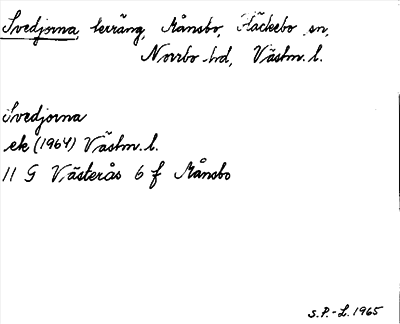 Svedjorna, terräng, Månsbo, Fläckebo sn,
Norrbo hd, Västm. l.
Svedjorna
ek (1964) Västm. l.
11 G Västerås 6 f Månsbo
S.P.-L. 1965